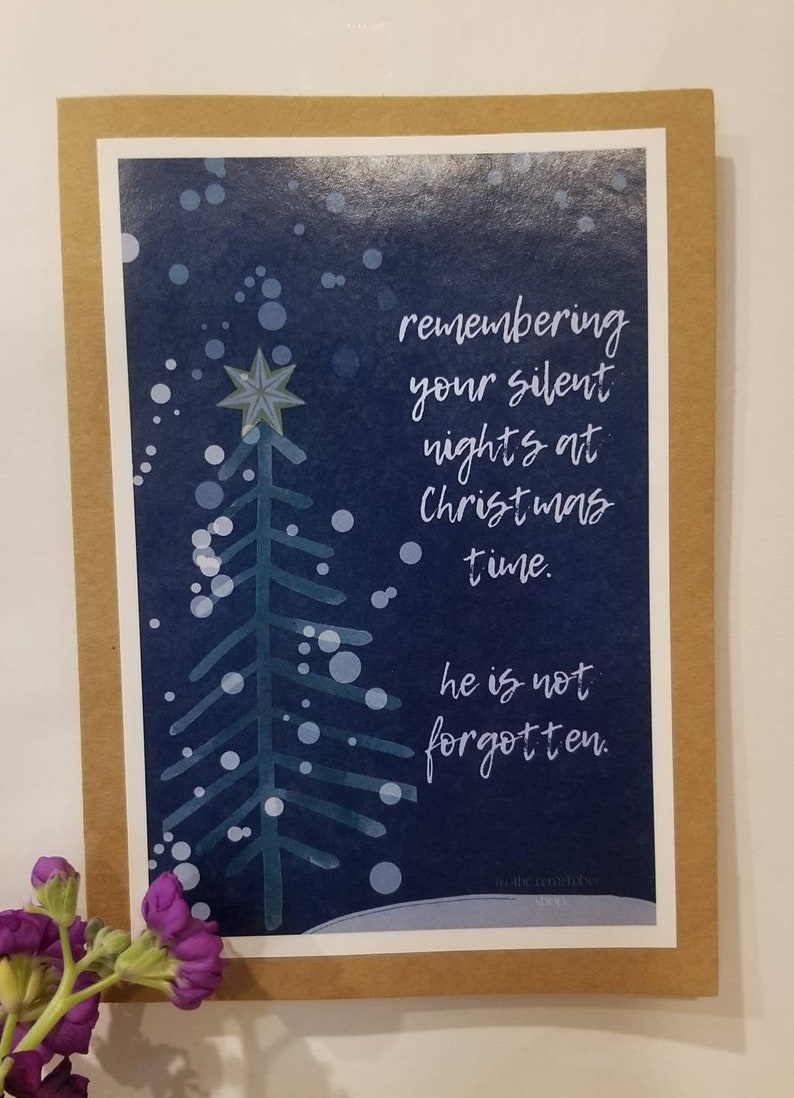 remembering
your silent
nights at
Christmas
time.
he is not
forgotten.
the remember
shop